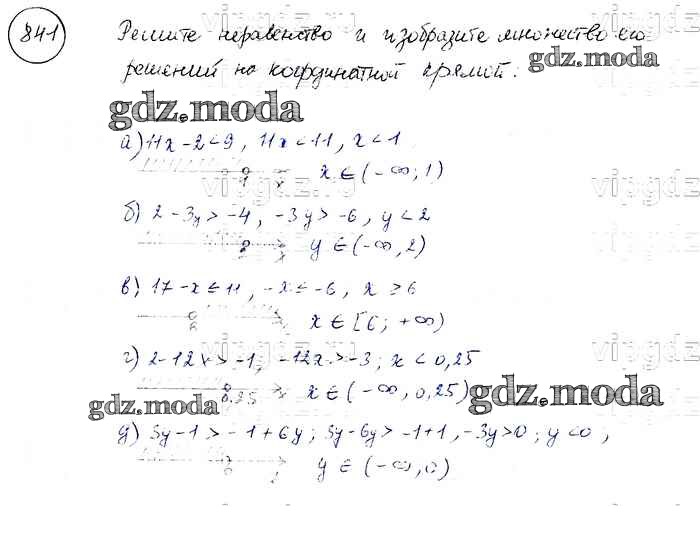 841
Решите неравенство и изобразите множество его
решений на координатной прямой.
gdz.moda
а) 11x-2<9, 11x<11, x<1
1 x x ∈ (-∞; 1)
б) 2-3y>-4, -3y>-6, y<2
2 x y ∈ (-∞, 2)
в) 17-x≤11, -x≤-6, x≥6
6 x x ∈ [6; +∞)
г) 2-12x>-1, -12x>-3; x<0,25
0,25 x x ∈ (-∞, 0,25)
gdz.moda gdz.moda
д) 3y-1>-1+6y; 3y-6y>-1+1, -3y>0; y<0,
0 x y ∈ (-∞, 0)
vipgdz.ru